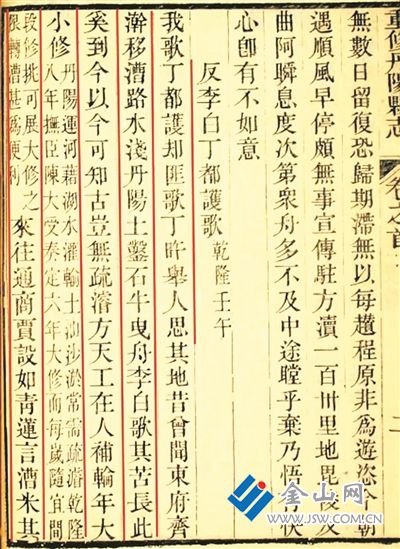 重修丹陽縣志 卷之首 二
無數日留復恐歸期滯無以每趲程原非爲遊恣今朝
遇順風早停頗無事宣傳駐方瀆一百卅里地毗陵及
曲阿瞬息度次第衆舟多不及中途瞠乎棄乃悟有快
心卽有不如意
反李白丁都護歌 乾隆壬午
我歌丁都護却匪歌丁旿舉人思其地昔曾聞東府齊
澣移漕路水淺丹陽土鑿石牛曳舟李白歌其苦長此
奚到今以今可知古豈無疏濬方天工在人補輸年大
小修
丹陽運河藉湖水灌輸土沙淤常需疏濬乾隆
八年撫臣陳大受奏定六年大修而每歲隨宜間
段修挑可展大修之
限轉漕甚爲便利
來往通商賈設如靑蓮言漕米其
金山网
WWW.JSW.COM.CN